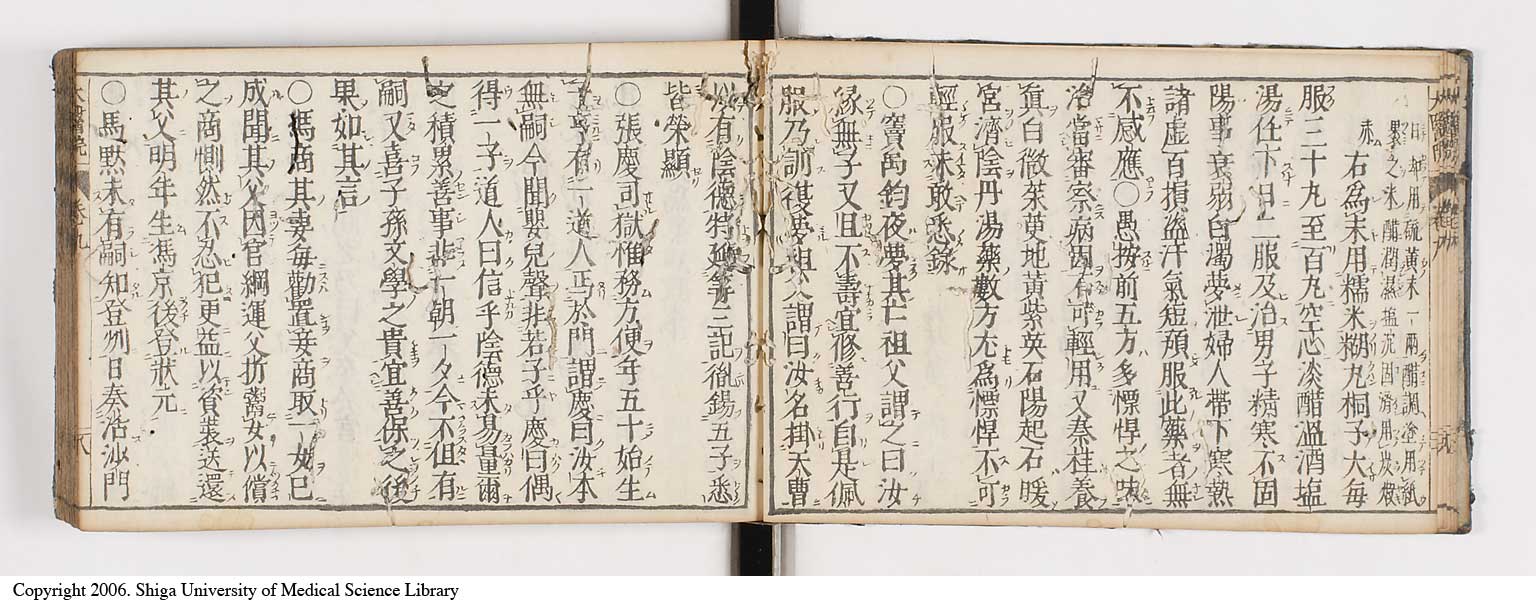 日却用硫黄末一兩醋調塗用紙
裹之米醋潤濕塩泥固濟用炭煅
赤　右為末用糯米糊丸桐子大每
服三十九至百九空心淡醋溫酒塩
湯任下日二服及治男子精寒不固
陽事衰弱白濁夢泄婦人帶下寒熱
諸虛百損盜汗氣短頻服此藥者無
不感應○愚按前五方多慓悍之味
治當審察病因有可輕用又秦桂養
真白微茱萸地黃紫英石陽起石暖
宮濟陰丹湯藥數方尤為慓悍不可
輕服未敢悉錄
○竇禹鈞夜夢其亡祖父謂之曰汝
緣無子又且不壽宜修善行自是佩
服乃訓後夢祖父謂曰汝名掛天曹
以有陰德特延筭三記賜五子悉
皆榮顯
○張慶司獄惟務方便年五十始生
有一道人丐於門謂慶曰汝本
無嗣今聞嬰兒聲非若子乎慶曰偶
得一子道人曰信乎陰德未易量爾
之積累善事非一朝一夕今不但有
嗣又喜子孫文學之貴宜善保之後
果如其言
○馮商其妻每勸置妾商取一女已
成聞其父因官綱運父折鬻女以償
之商惻然不忍犯更益以資裝送還
其父明年生馮京後登狀元
○馬默未有嗣知登州日奏沿沙門
Copyright 2006. Shiga University of Medical Science Library